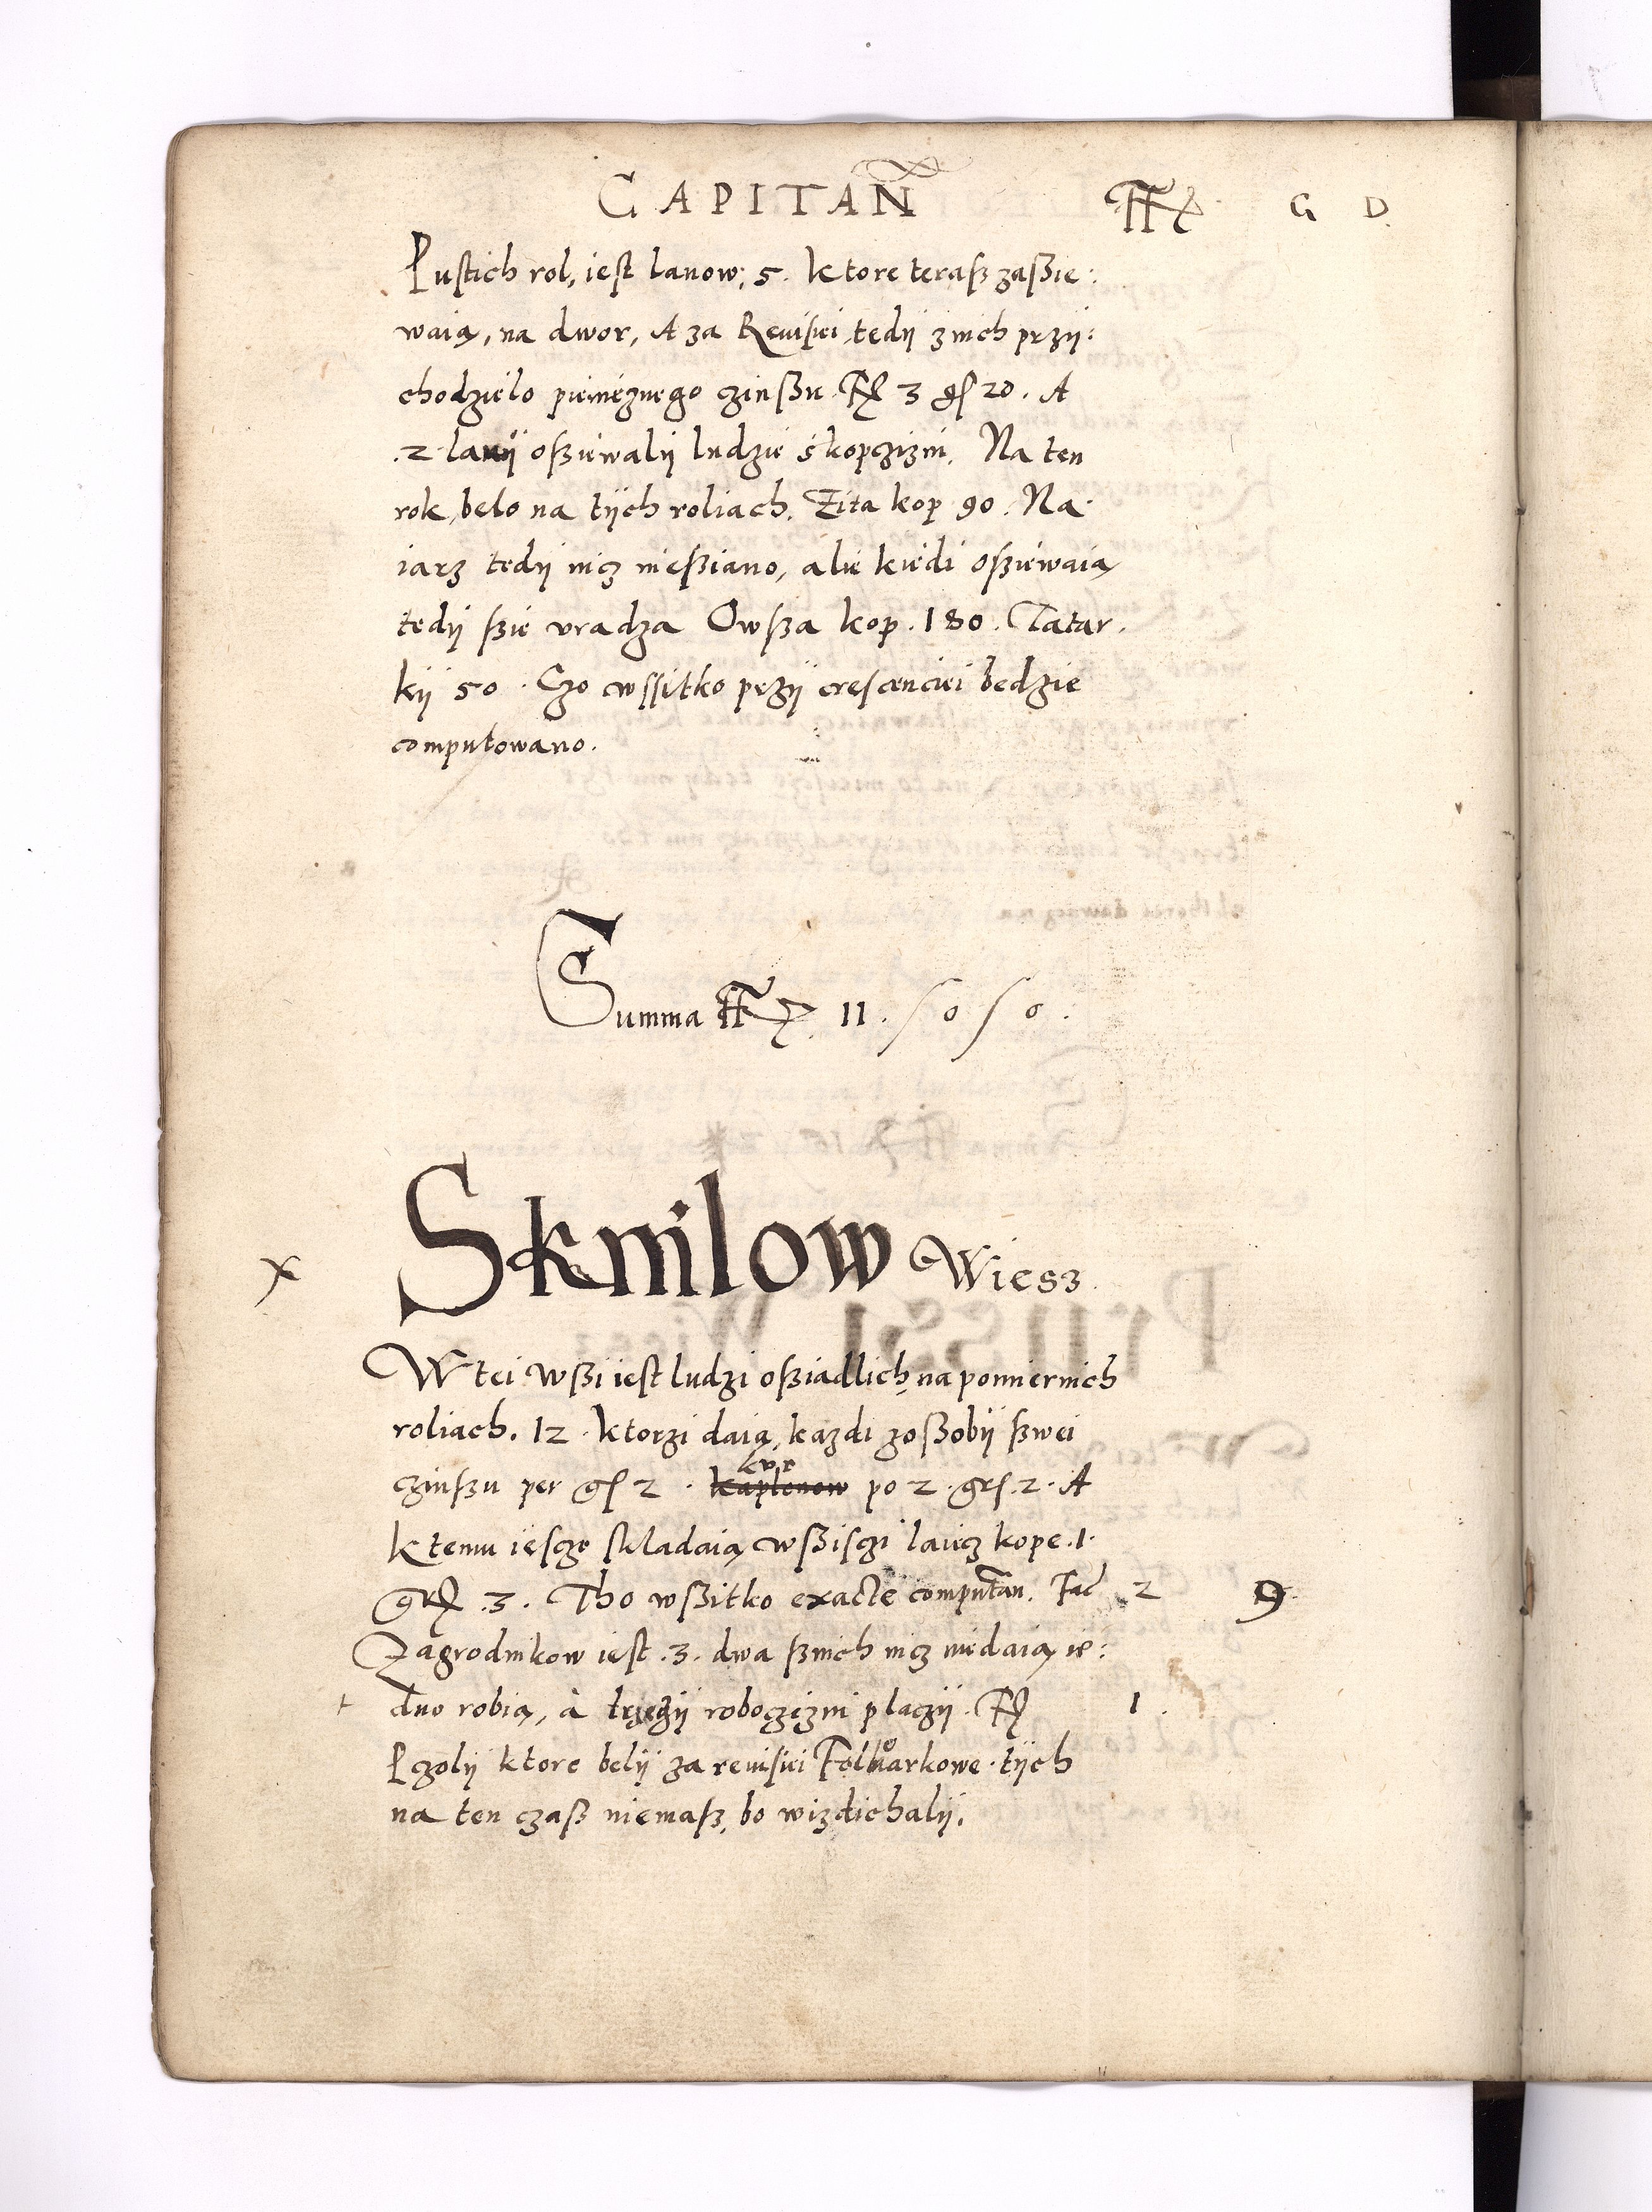 CAPITAN̄ ff G D
Pustich rol, iest lanow; 5. ktore teraß zaßie:
waią, na dwor, A za Reuisiei, tedÿ z nich przÿ:
chodzielo pieniéznego czinßu ff 3 gſ 20. A
.2 lanÿ oßiewalÿ ludzie skopczizni. Na ten
rok, belo na tÿch roliach. Zita kop 90. Na
iarz tedÿ nicz nießiano, alie kiedi oßiewaią
tedÿ ßie vradza Owßa kop. 180. Tatar.
kÿ 50. Czo wssitko przÿ crescenciei bedzie
computowano.
Summa ff 11. / 0 / 0.
x Sknilow Wiesz
W tei wßi iest ludzi oßiadlich, na pomiernich
roliach. 12. ktorzi daią, kazdi zoßobÿ ßwei
kur
czinßu per gſ 2. kaplonow po 2. grſ. 2. A
k temu iescze skladaią wßisczi laiicz kope .1.
gr .3. Tho wßitko exacte computan̄. Fac 2 9.
Zagrodnikow iest .3. dwa ßnich nicz niedaią ie:
+ dno robią, à trzeczÿ roboczizni placzÿ. ff 1.
Pczolÿ ktore belÿ za reuisiei Folwarkowe. tÿch
na ten czaß niemaß, bo wizdichalÿ.